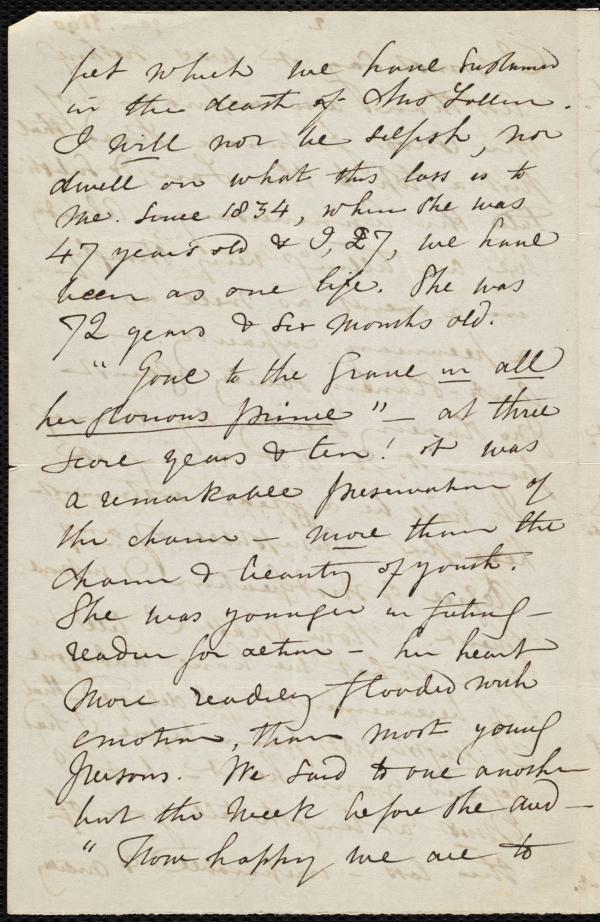 yet which we have sustained
in the death of Mrs Follen.
I will not be selfish, nor
dwell on what this loss is to
me. Since 1834, when she was
47 years old & I, 27, we have
been as one life. She was
72 years & six months old.
"Gone to the grave in all
her glorious prime" — at three
score years & ten! It was
a remarkable preservation of
the charm — more than the
charm & beauty of youth.
She was younger in feeling —
readier for action — her heart
more readily flooded with
emotion, than most young
persons. We said to one another
but the week before she died —
"How happy we are to